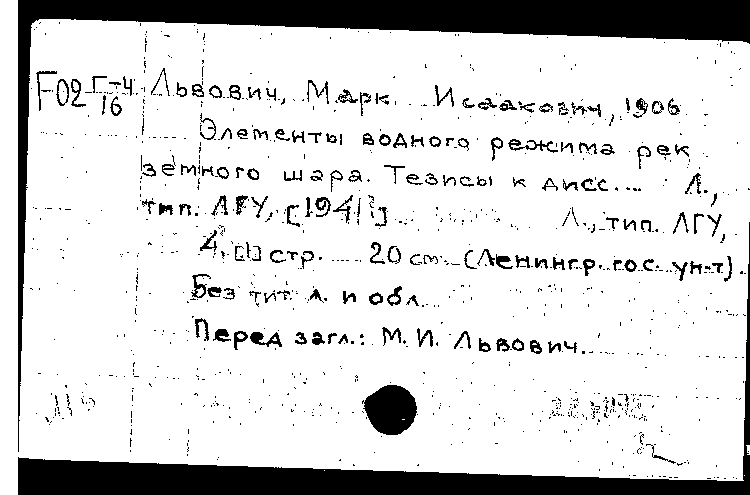 F02 Г-4/16 Львович, Марк Исаакович, 1906
Элементы водного режима рек
земного шара. Тезисы к дисс... Л.,
тип. ЛГУ, [1941?] Л., тип. ЛГУ,
4, [1] стр. 20 см. (Ленингр. гос. ун-т).
Без тит. л. и обл.
Перед загл.: М. И. Львович.